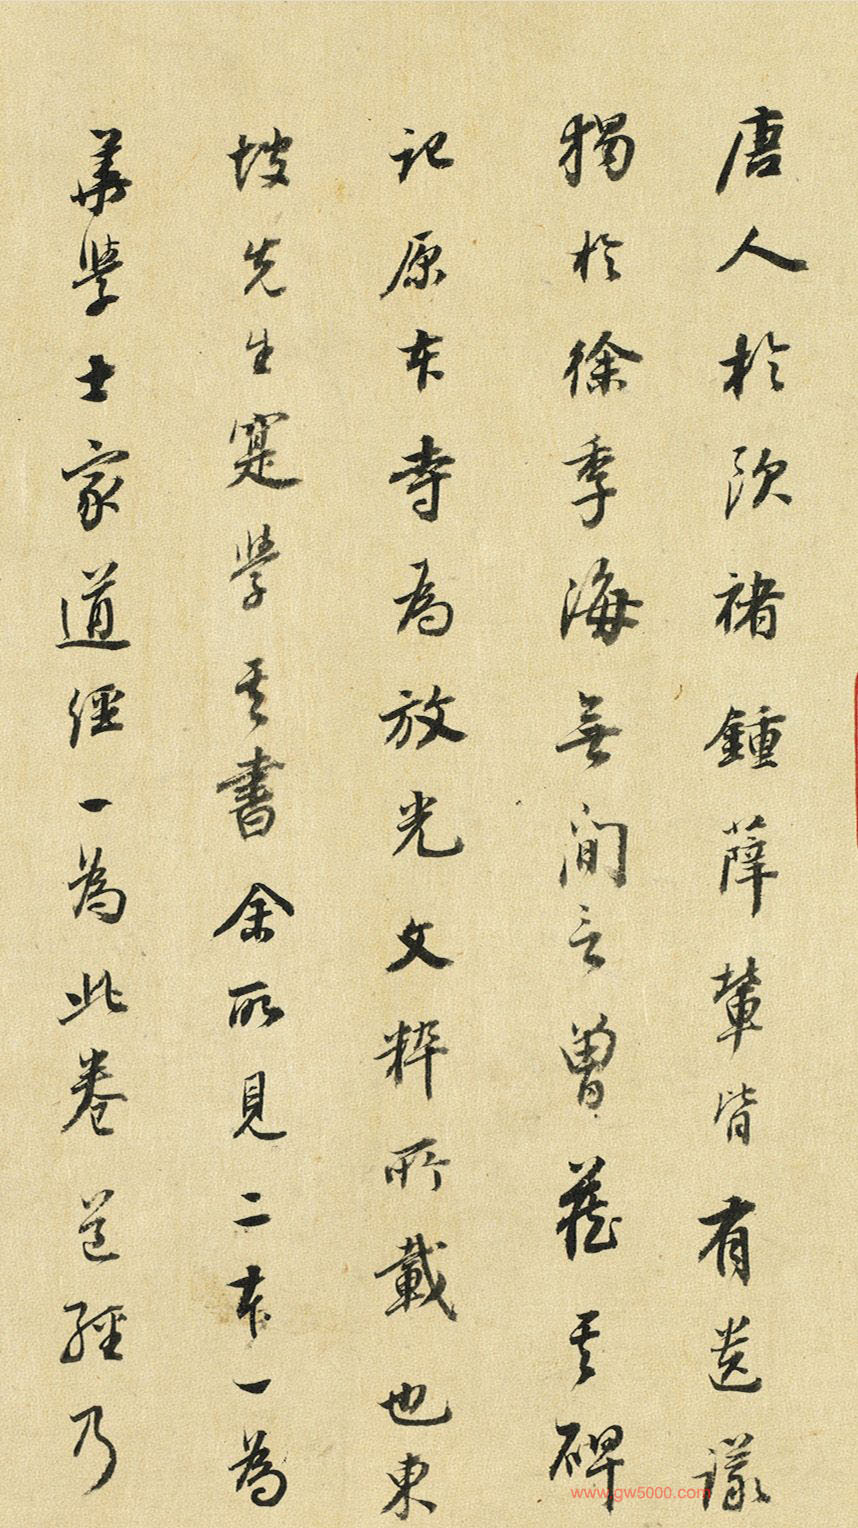 唐人於欧褚鍾薛輩皆有遺議
獨於徐季海無間言曾藏其碑
記原本寺為放光文粹所載也東
坡先生寔學其書余所見二本一為
華學士家道經一為此卷道經乃
www.gw5000.com